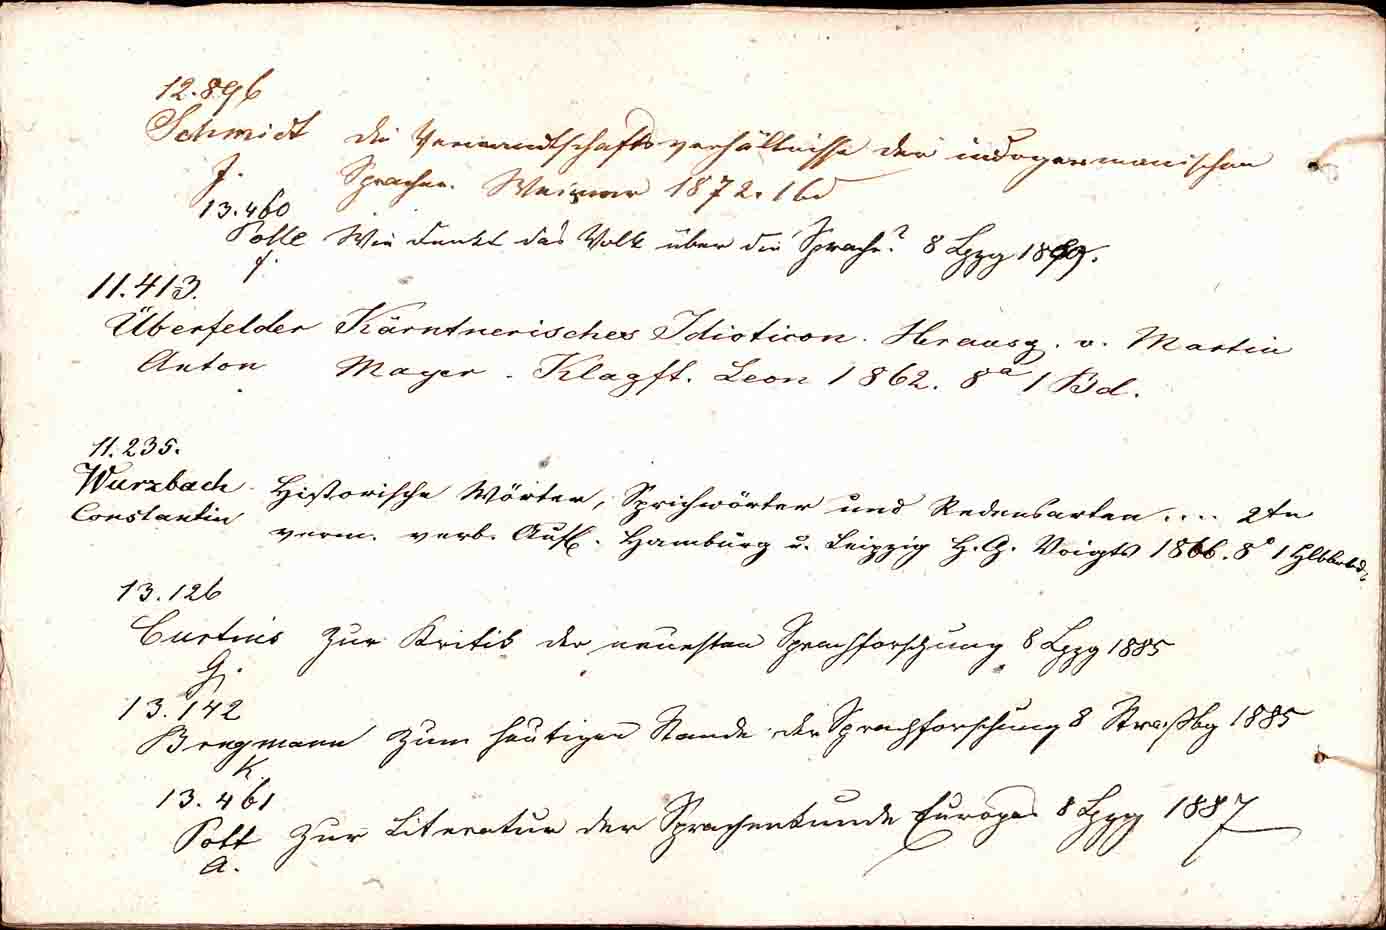 12.896
Schmidt die Verwandtschaftsverhältnisse der indogermanischen
J. Sprachen. Weimar 1872. 1 bd
13.460
Polle Wie denkt das Volk über die Sprache? 8 Lpzg 1889.
f.
11.413.
Überfelder Kärntnerisches Idioticon. Herausg. v. Martin
Anton Mayer. Klagft. Leon 1862. 8° 1 Bd.
11.235.
Wurzbach Historische Wörter, Sprichwörter und Redensarten .... 2te
Constantin verm. verb. Aufl. Hamburg u. Leipzig H. G. Voigts 1866. 8° 1
13.126
Curtius Zur Kritik der neuesten Sprachforschung 8 Lpzg 1885
G.
13.142
Brugmann Zum heutigen Stande der Sprachforschung 8 Straßbg 1885
K.
13.461
Pott Zur Literatur der Sprachenkunde Europas 8 Lpzg 1887
A.